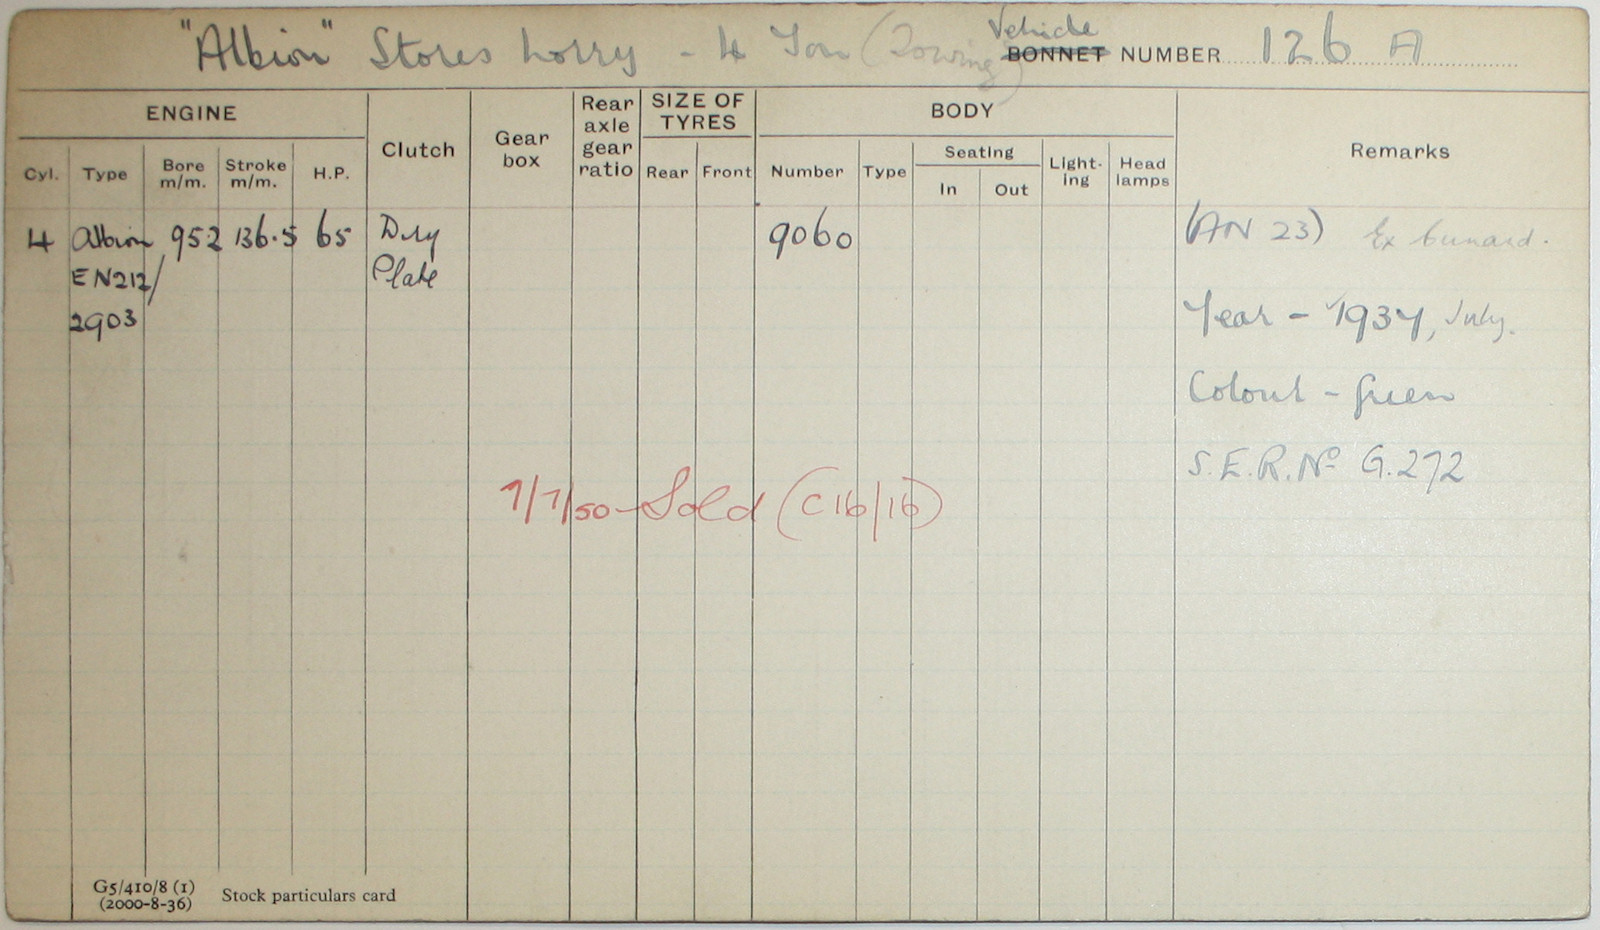 "Albion" Stores Lorry - 4 Ton (Towing) Vehicle
BONNET NUMBER 126 A
ENGINE
Clutch
Gear box
Rear axle gear ratio
SIZE OF TYRES
BODY
Remarks
Cyl. Type Bore m/m. Stroke m/m. H.P.
Rear Front
Number Type Seating In Out Light-ing Head lamps
4 Albion 95.2 136.5 65 Dry 9060 (AN 23) Ex Cunard.
EN212/ Plate
2903 Year - 1937, July.
Colour - Green
S.E.R. No G.272
7/7/50 - Sold (C16/16)
G5/410/8 (1)
(2000-8-36) Stock particulars card